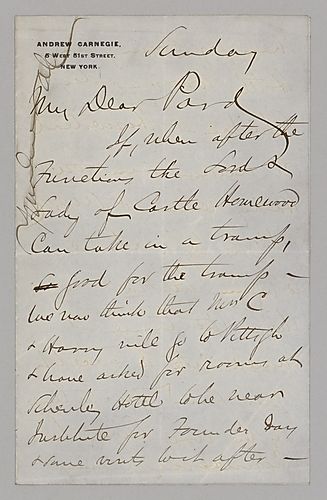 ANDREW CARNEGIE,
5 WEST 51ST STREET,
NEW YORK.
Sunday
My Dear Pard
If, when after the
Functions the Lord &
Lady of Castle Homewood
Can take in a tramp,
good for the tramp —
We now think that Mrs C
& Harry will go to Pittsgh
& have asked for rooms at
Schenley Hotel to be near
Institute for Founder Day
& some visits to it after —